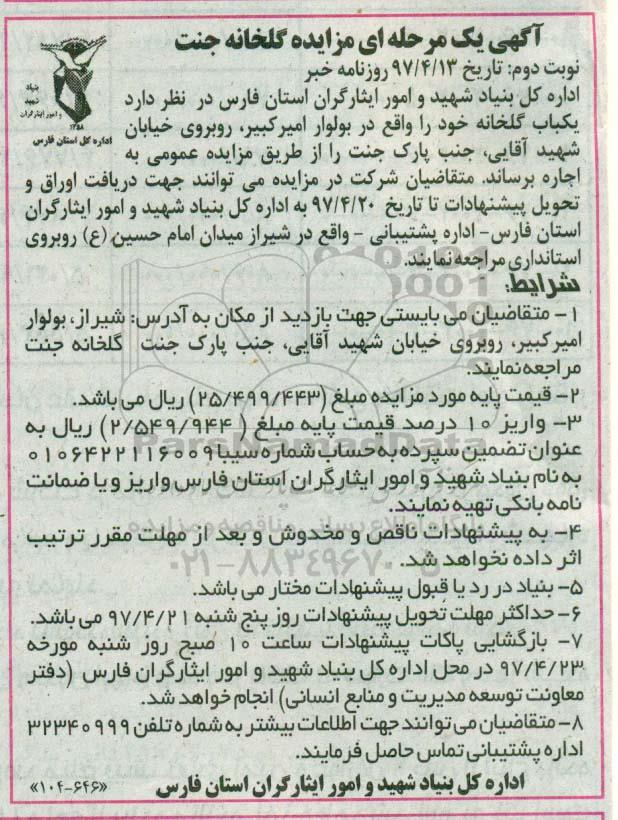 آگهی یک مرحله ای مزایده گلخانه جنت
نوبت دوم: تاریخ ۹۷/۴/۱۳ روزنامه خبر
بنیاد
شهید
و امور ایثارگران
۱۳۵۸
اداره کل استان فارس
اداره کل بنیاد شهید و امور ایثارگران استان فارس در نظر دارد
یکباب گلخانه خود را واقع در بولوار امیرکبیر، روبروی خیابان
شهید آقایی، جنب پارک جنت را از طریق مزایده عمومی به
اجاره برساند. متقاضیان شرکت در مزایده می توانند جهت دریافت اوراق و
تحویل پیشنهادات تا تاریخ ۹۷/۴/۲۰ به اداره کل بنیاد شهید و امور ایثارگران
استان فارس- اداره پشتیبانی - واقع در شیراز میدان امام حسین (ع) روبروی
استانداری مراجعه نمایند.
شرایط:
۱- متقاضیان می بایستی جهت بازدید از مکان به آدرس: شیراز، بولوار
امیرکبیر، روبروی خیابان شهید آقایی، جنب پارک جنت گلخانه جنت
مراجعه نمایند.
۲- قیمت پایه مورد مزایده مبلغ (۲۵/۴۹۹/۴۴۳) ریال می باشد.
۳- واریز ۱۰ درصد قیمت پایه مبلغ (۲/۵۴۹/۹۴۴) ریال به
عنوان تضمین سپرده به حساب شماره سیبا ۰۱۰۶۴۲۲۱۱۶۰۰۹
به نام بنیاد شهید و امور ایثارگران استان فارس واریز و یا ضمانت
نامه بانکی تهیه نمایند.
۴- به پیشنهادات ناقص و مخدوش و بعد از مهلت مقرر ترتیب
اثر داده نخواهد شد.
۵- بنیاد در رد یا قبول پیشنهادات مختار می باشد.
۶- حداکثر مهلت تحویل پیشنهادات روز پنج شنبه ۹۷/۴/۲۱ می باشد.
۷- بازگشایی پاکات پیشنهادات ساعت ۱۰ صبح روز شنبه مورخه
۹۷/۴/۲۳ در محل اداره کل بنیاد شهید و امور ایثارگران فارس (دفتر
معاونت توسعه مدیریت و منابع انسانی) انجام خواهد شد.
۸- متقاضیان می توانند جهت اطلاعات بیشتر به شماره تلفن ۳۲۳۴۰۹۹۹
اداره پشتیبانی تماس حاصل فرمایند.
اداره کل بنیاد شهید و امور ایثارگران استان فارس
«۱۰۴-۶۴۶»
ParsNamadData
۰۲۱-۸۸۳۴۹۶۷۰